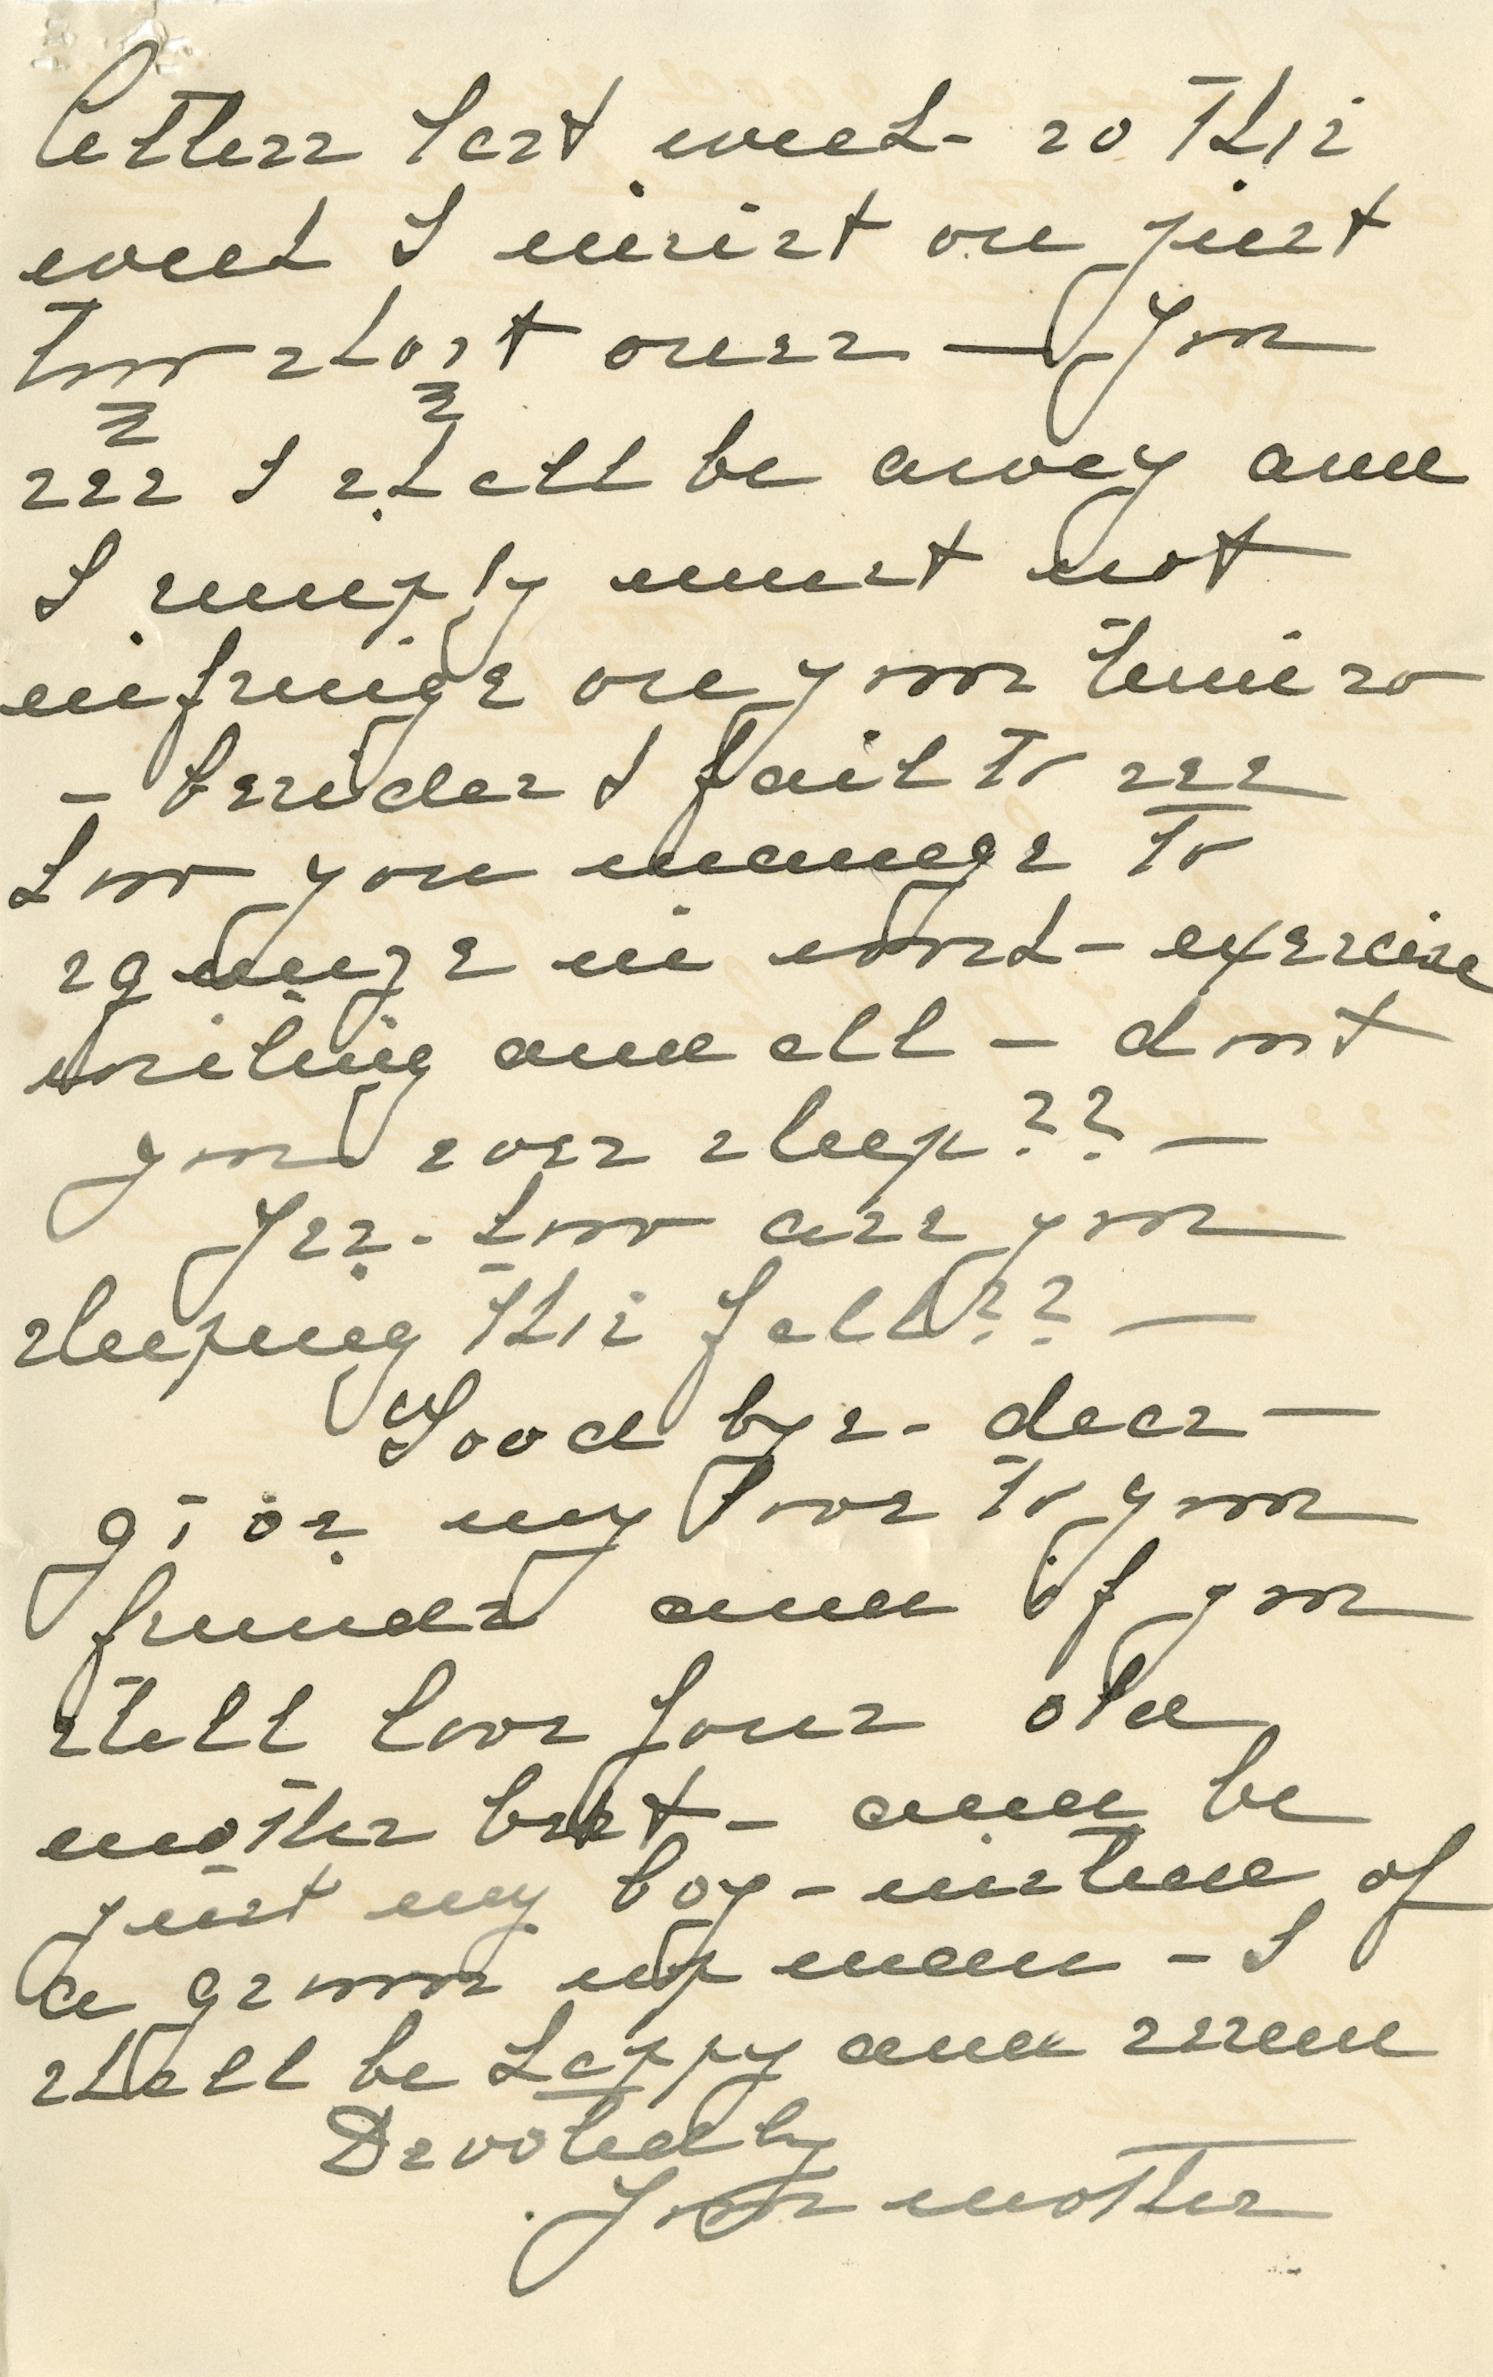 letters last week - so this
week I insist on just
two short ones — You
see I shall be away and
I simply must not
infringe on your time so
- besides I fail to see
how you manage to
squeeze in work - exercise
writing and all - dont
you ever sleep?? —
Yes - how are you
sleeping this fall?? —
Good bye - dear —
give my love to your
friends and if you
still love your old
mother best - and be
just my boy - instead of
a grown up man - I
shall be happy and serene
Devotedly
Your mother